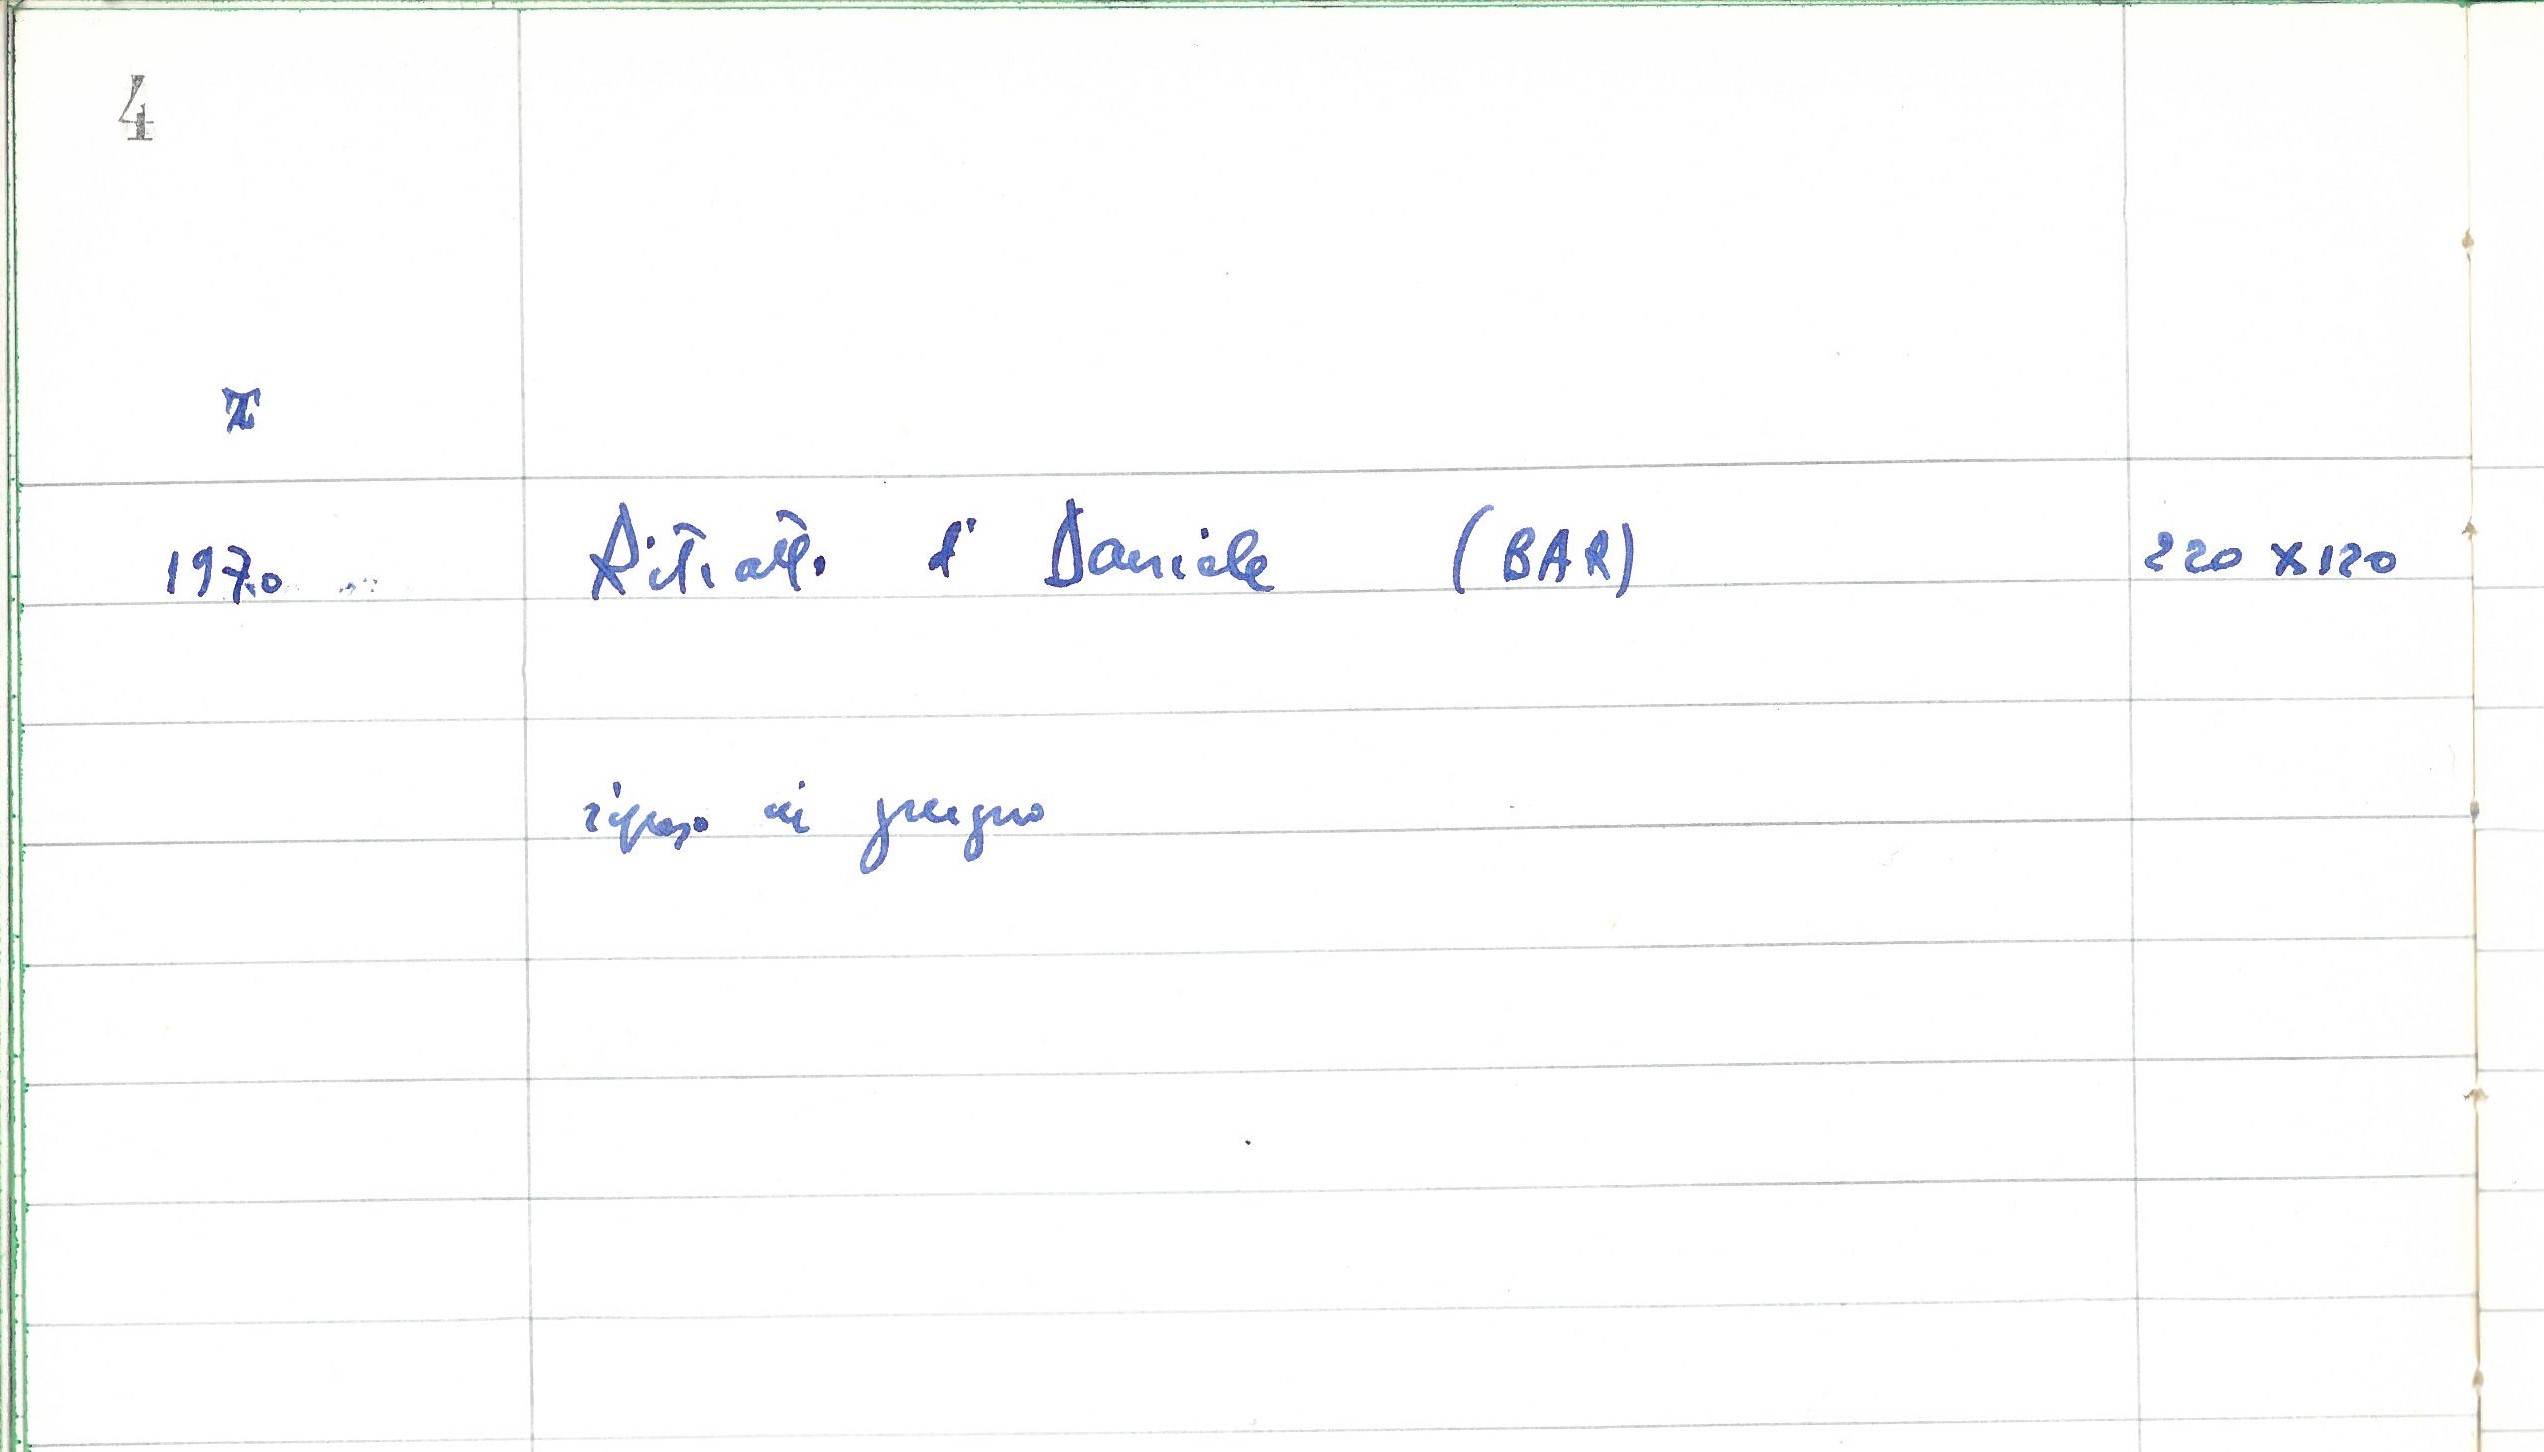 4
1970 Ritratto di Daniele (BAR) 220 x 120
ripreso in giugno